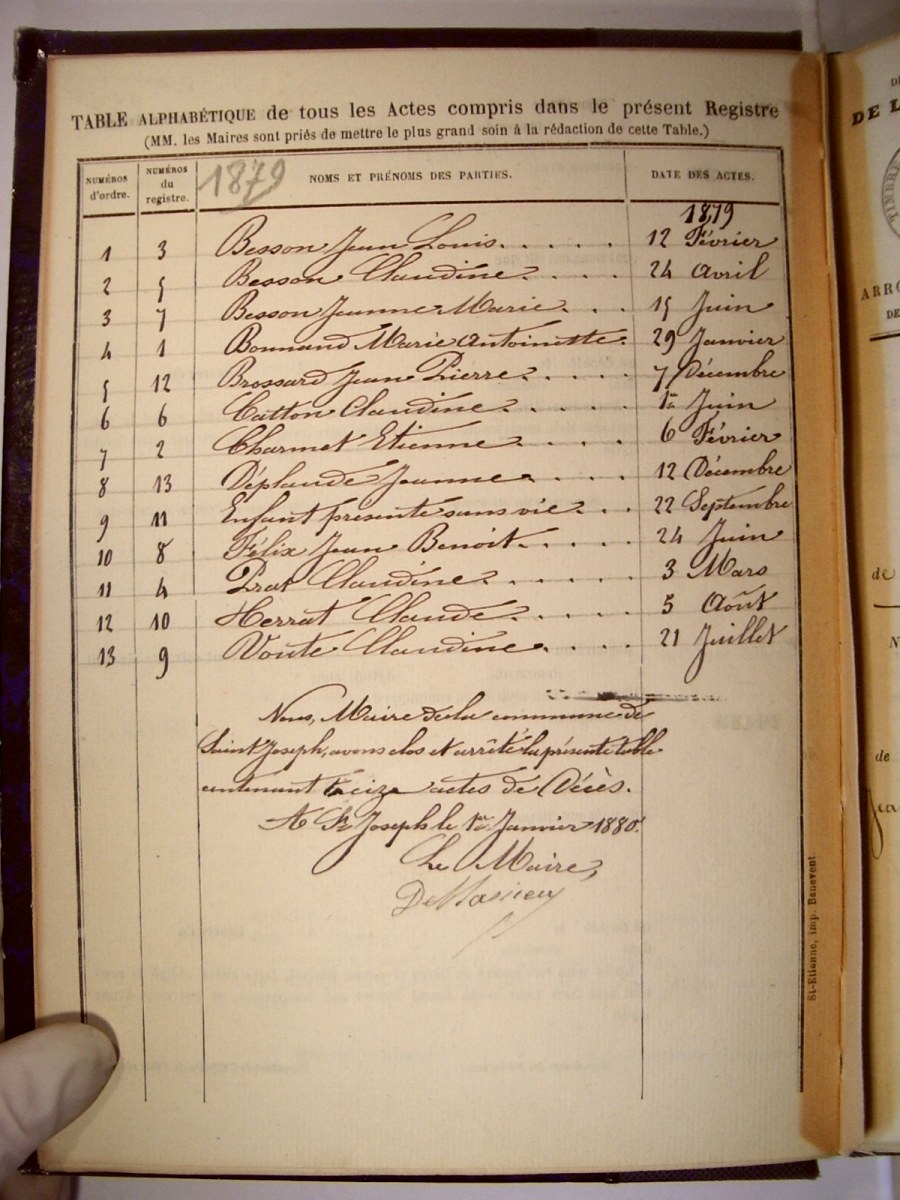 TABLE ALPHABÉTIQUE de tous les Actes compris dans le présent Registre
(MM. les Maires sont priés de mettre le plus grand soin à la rédaction de cette Table.)
NUMÉROS d'ordre. NUMÉROS du registre. 1879 NOMS ET PRÉNOMS DES PARTIES. DATE DES ACTES.
1879
1 3 Besson Jean Louis. . . . . . 12 Février
2 5 Besson Claudine . . . . 24 Avril
3 7 Besson Jeanne Marie. . . 15 Juin
4 1 Bonnand Marie Antoinette. 29 Janvier
5 12 Brossard Jean Pierre . . . . 7 Décembre
6 6 Catton Claudine . . . . . 1er Juin
7 2 Charmet Etienne . . . . 6 Février
8 13 Déplaude Jeanne . . . . 12 Décembre
9 11 Enfant présenté sans vie . . . 22 Septembre
10 8 Félix Jean Benoit. . . . . 24 Juin
11 4 Prat Claudine . . . . . 3 Mars
12 10 Claude . . . . . 5 Août
13 9 Voute Claudine . . . . 21 Juillet
Nous, Maire de la commune de
Saint Joseph, avons clos et arrêté la présente table
contenant treize actes de Décès.
A St Joseph le 1er Janvier 1880.
Le Maire,
St-Etienne, imp. Benevent
DE L
TIMBRE
ARRO
DE
de
N
de